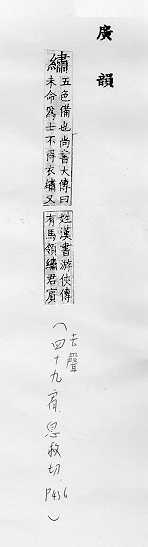 廣韻
繡
五色備也尚書大傳曰
未命為士不得衣繡又
姓漢書游俠傳
有馬領繡君賓
(去聲
四十九宥.息救切.P436)